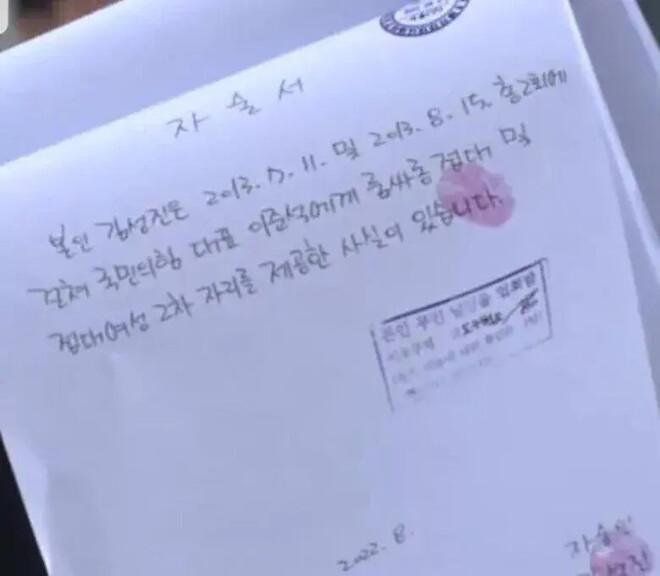 자술서
본인 김성진은 2013. 7. 11. 및 2013. 8. 15. 총2회에
걸쳐 국민의힘 대표 이준석에게 룸싸롱 접대 및
접대여성 2차 자리를 제공한 사실이 있습니다.
본인 무인
2022. 8.
자술인
김성진